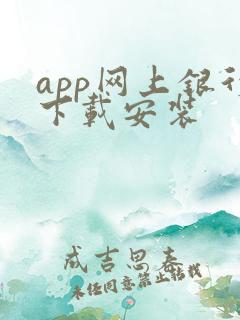 app网上银行
下载安装
成吉思春
未经同意禁止转载